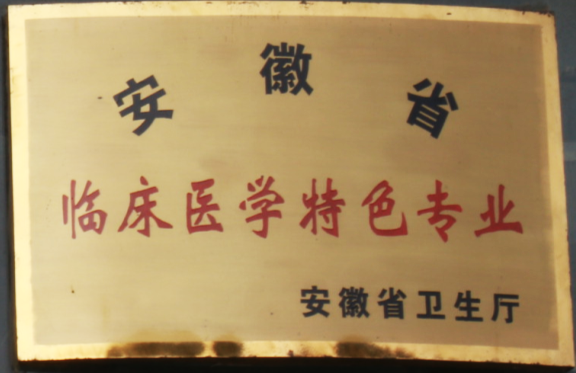 安徽省
临床医学特色专业
安徽省卫生厅